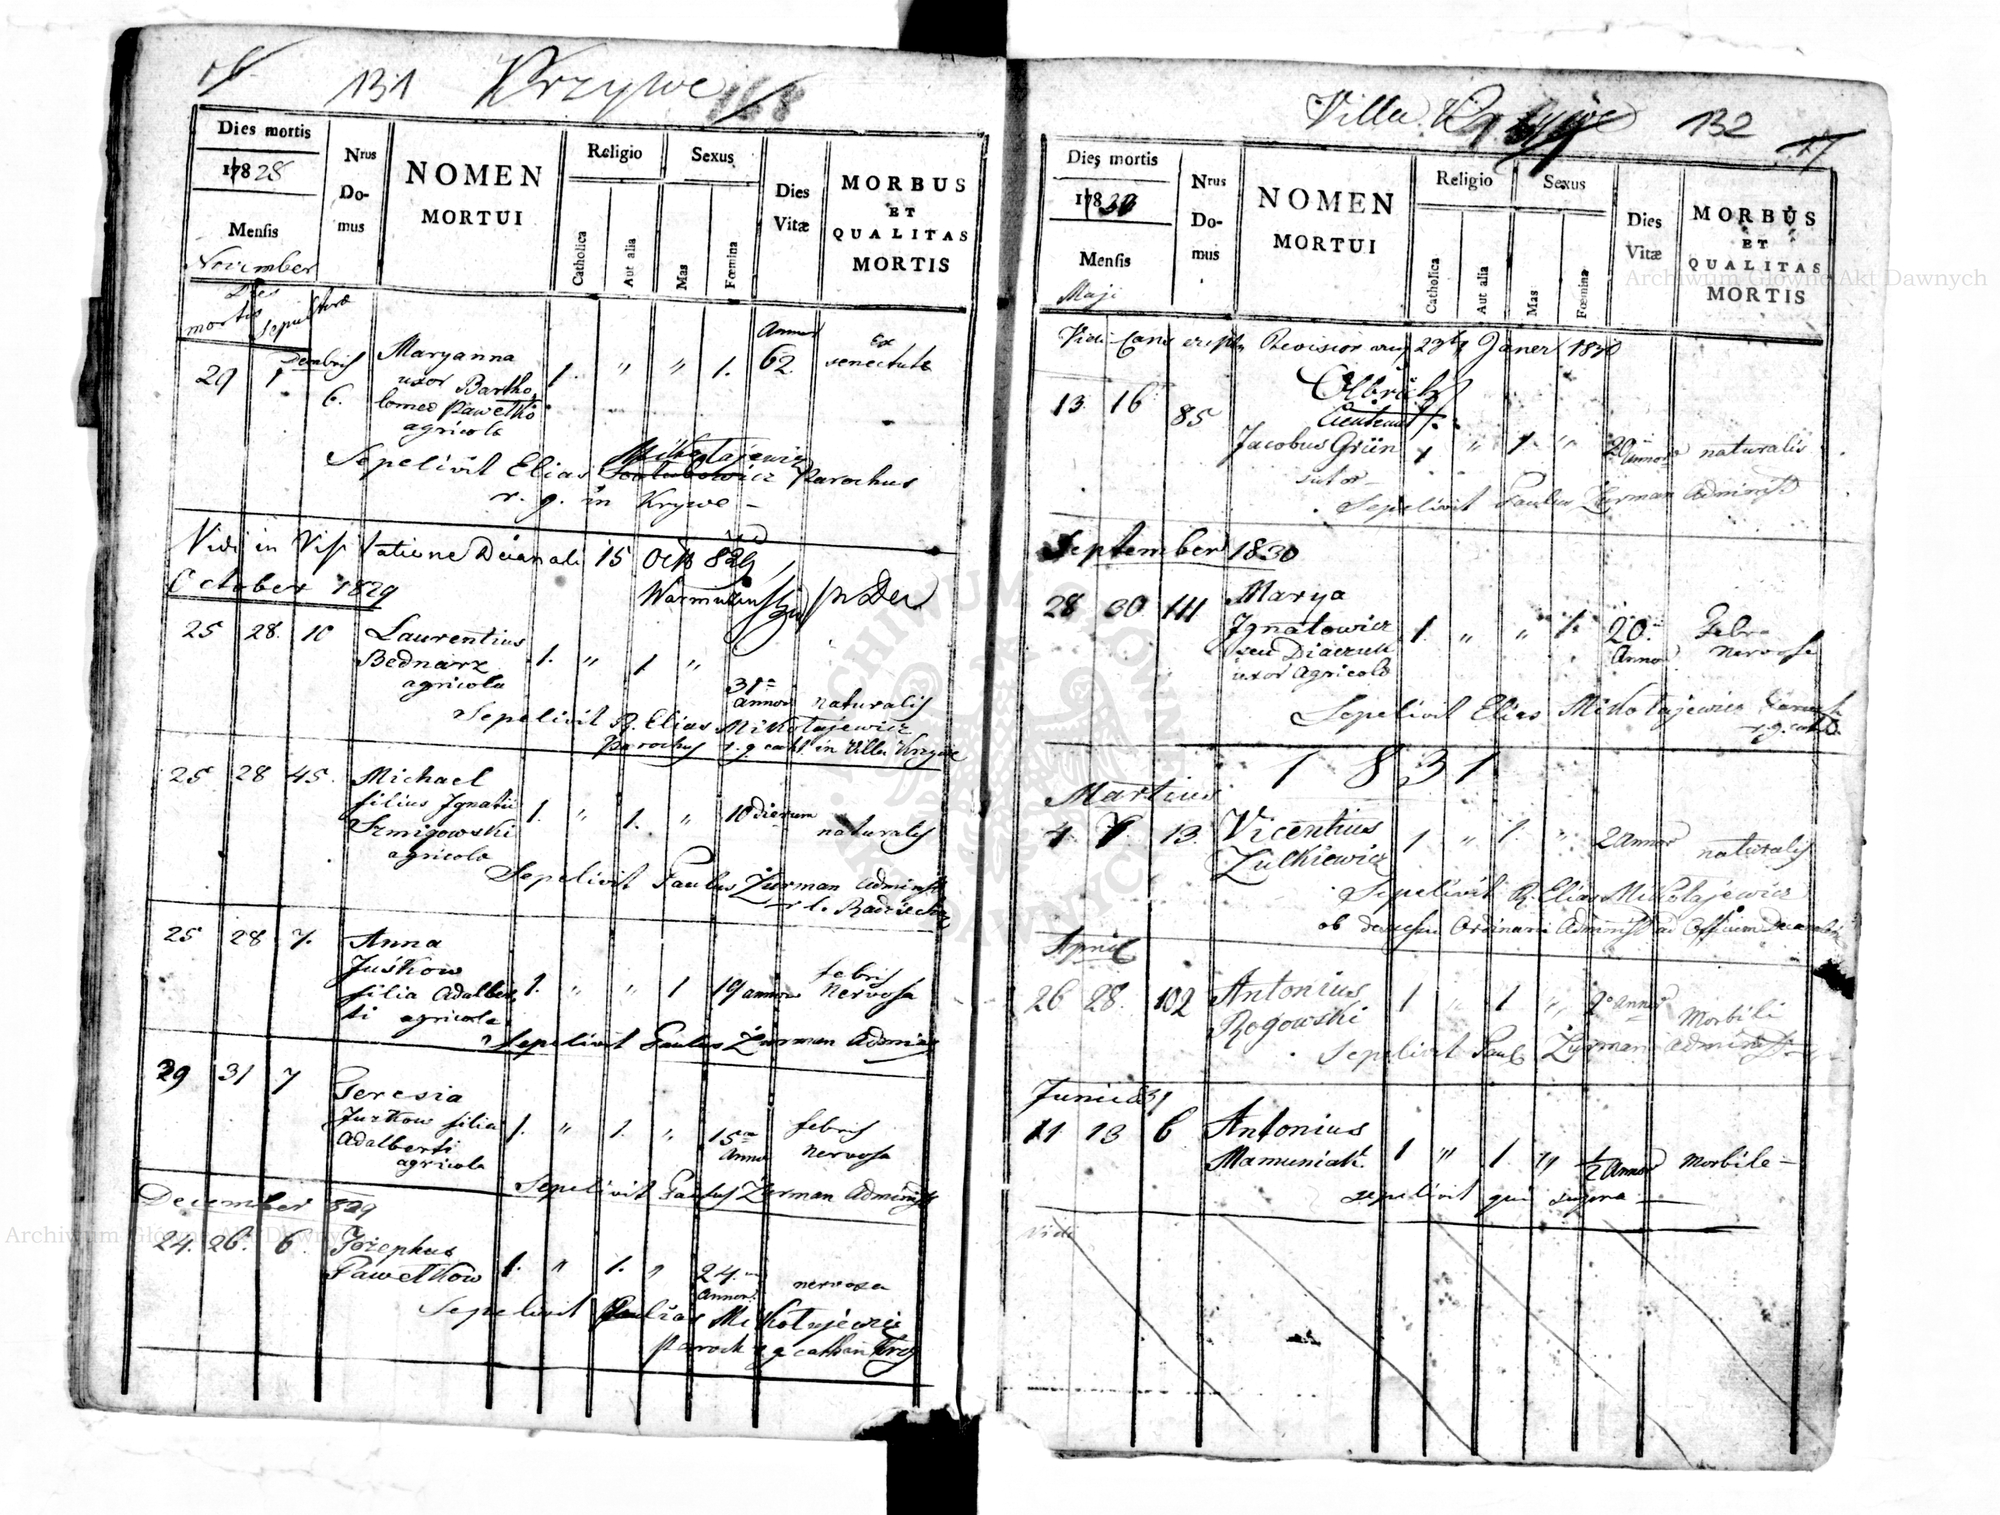 131 Krzywe 168
Dies mortis
1828
Mensis
November
Nrus
Do-
mus
NOMEN
MORTUI
Religio
Catholica
Aut alia
Sexus
Mas
Fœmina
Dies
Vitæ
MORBUS
ET
QUALITAS
MORTIS
Dies
mortis
sepulturæ
29 1 Decembris 6. Maryanna 1. " " 1. Annor 62. Ex senectute
uxor Bartho
lomeo Pawełko
agricola
Sepelivit Elias Mikołajewicz Parochus
r. g. in Krywe
Vidi in Visitatione Decanali 15 Octb 829
October 1829
25 28. 10 Laurentius
Bednarz 1. " 1 "
agricola 31 annor naturalis
Sepelivit R. Elias Mikołajewicz
Parochus r. g. cath. in Villa Krzywe
25 28 45. Michael
filius Ignatii 1. " 1. " 10 dierum naturalis
Szmigowski
agricola
Sepelivit Paulus Żurman Adminst
r. l. Radziech
25 28 7. Anna
Juśkow
filia Adalber 1. " " 1 19 annor febris nervosa
ti agricola
Sepelivit Paulus Żurman Admin
29 31 7 Teresia
Juzkow filia 1. " 1. " 15 Anno febris nervosa
Adalberti
agricola
Sepelivit Paulus Żurman Adminst
December 829
24. 26. 6. Jozephus
Pawełkow 1. " 1. " 24. Annor. nervosa
Sepelivit Elias Mikołajewicz
Paroch r g cath in Krzy
Villa Krzywe 132 17
Dies mortis
1830
Mensis
Maji
Nrus
Do-
mus
NOMEN
MORTUI
Religio
Catholica
Aut alia
Sexus
Mas
Fœmina
Dies
Vitæ
MORBUS
ET
QUALITAS
MORTIS
Vidi Revisior Janer 1830
13. 16 85
Jacobus Grün 1 " 1. " 20 annor naturalis
sutor
Sepelivit Paulus Żurman Adminst
September 1830
28 30 111 Marya
Ignatowicz 1. " " 1. 20. Anno Febr. nervosa
seu Diaczuk
uxor Agricola
Sepelivit Elias Mikołajewicz Paroch
r. g. cath.
1831
Martius
4 7. 13. Vicentius
Zulkiewicz 1 " 1. " 2 annor naturalis
Sepelivit R. Elias Mikołajewicz
ob Ordinarii Administ ad Officium
April
26 28. 102 Antonius
Rogowski 1 " 1 " 2 anno Morbili
Sepelivit Paul Żurman Adminst
Junii 831
11. 13 6 Antonius
Mamuniak. 1 " 1. " 1/2 Annor Morbile
sepelivit qui supra
Vidi
Archiwum Główne Akt Dawnych
Archiwum Główne Akt Dawnych
ARCHIWUM GŁÓWNE AKT DAWNYCH